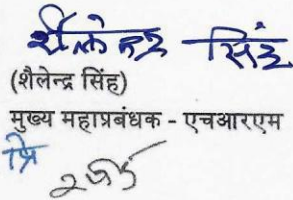 शैलेन्द्र सिंह
(शैलेन्द्र सिंह)
मुख्य महाप्रबंधक - एचआरएम
प्रि